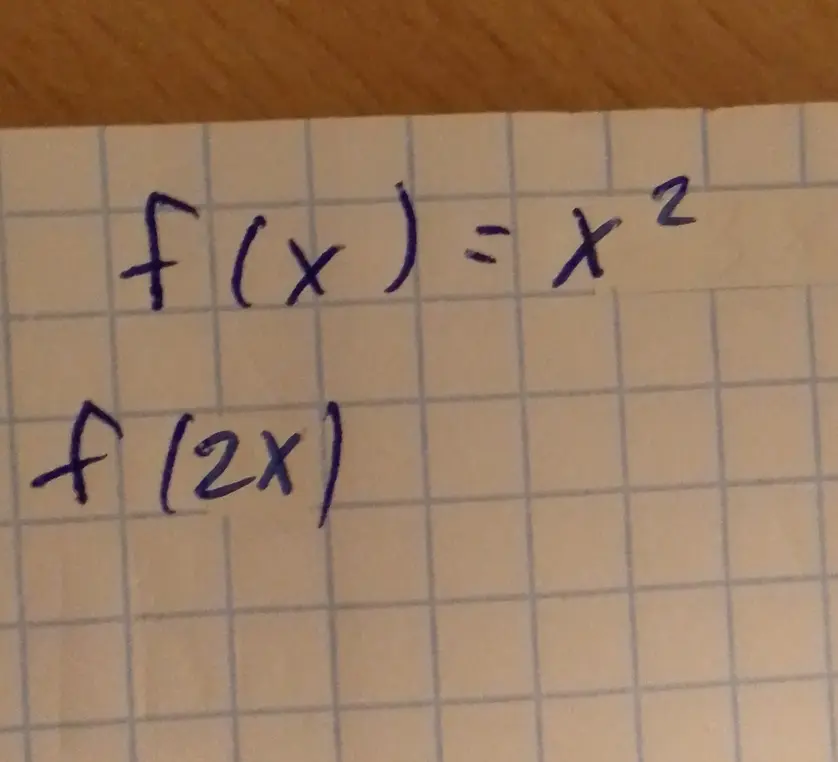 f(x) = x²
f(2x)